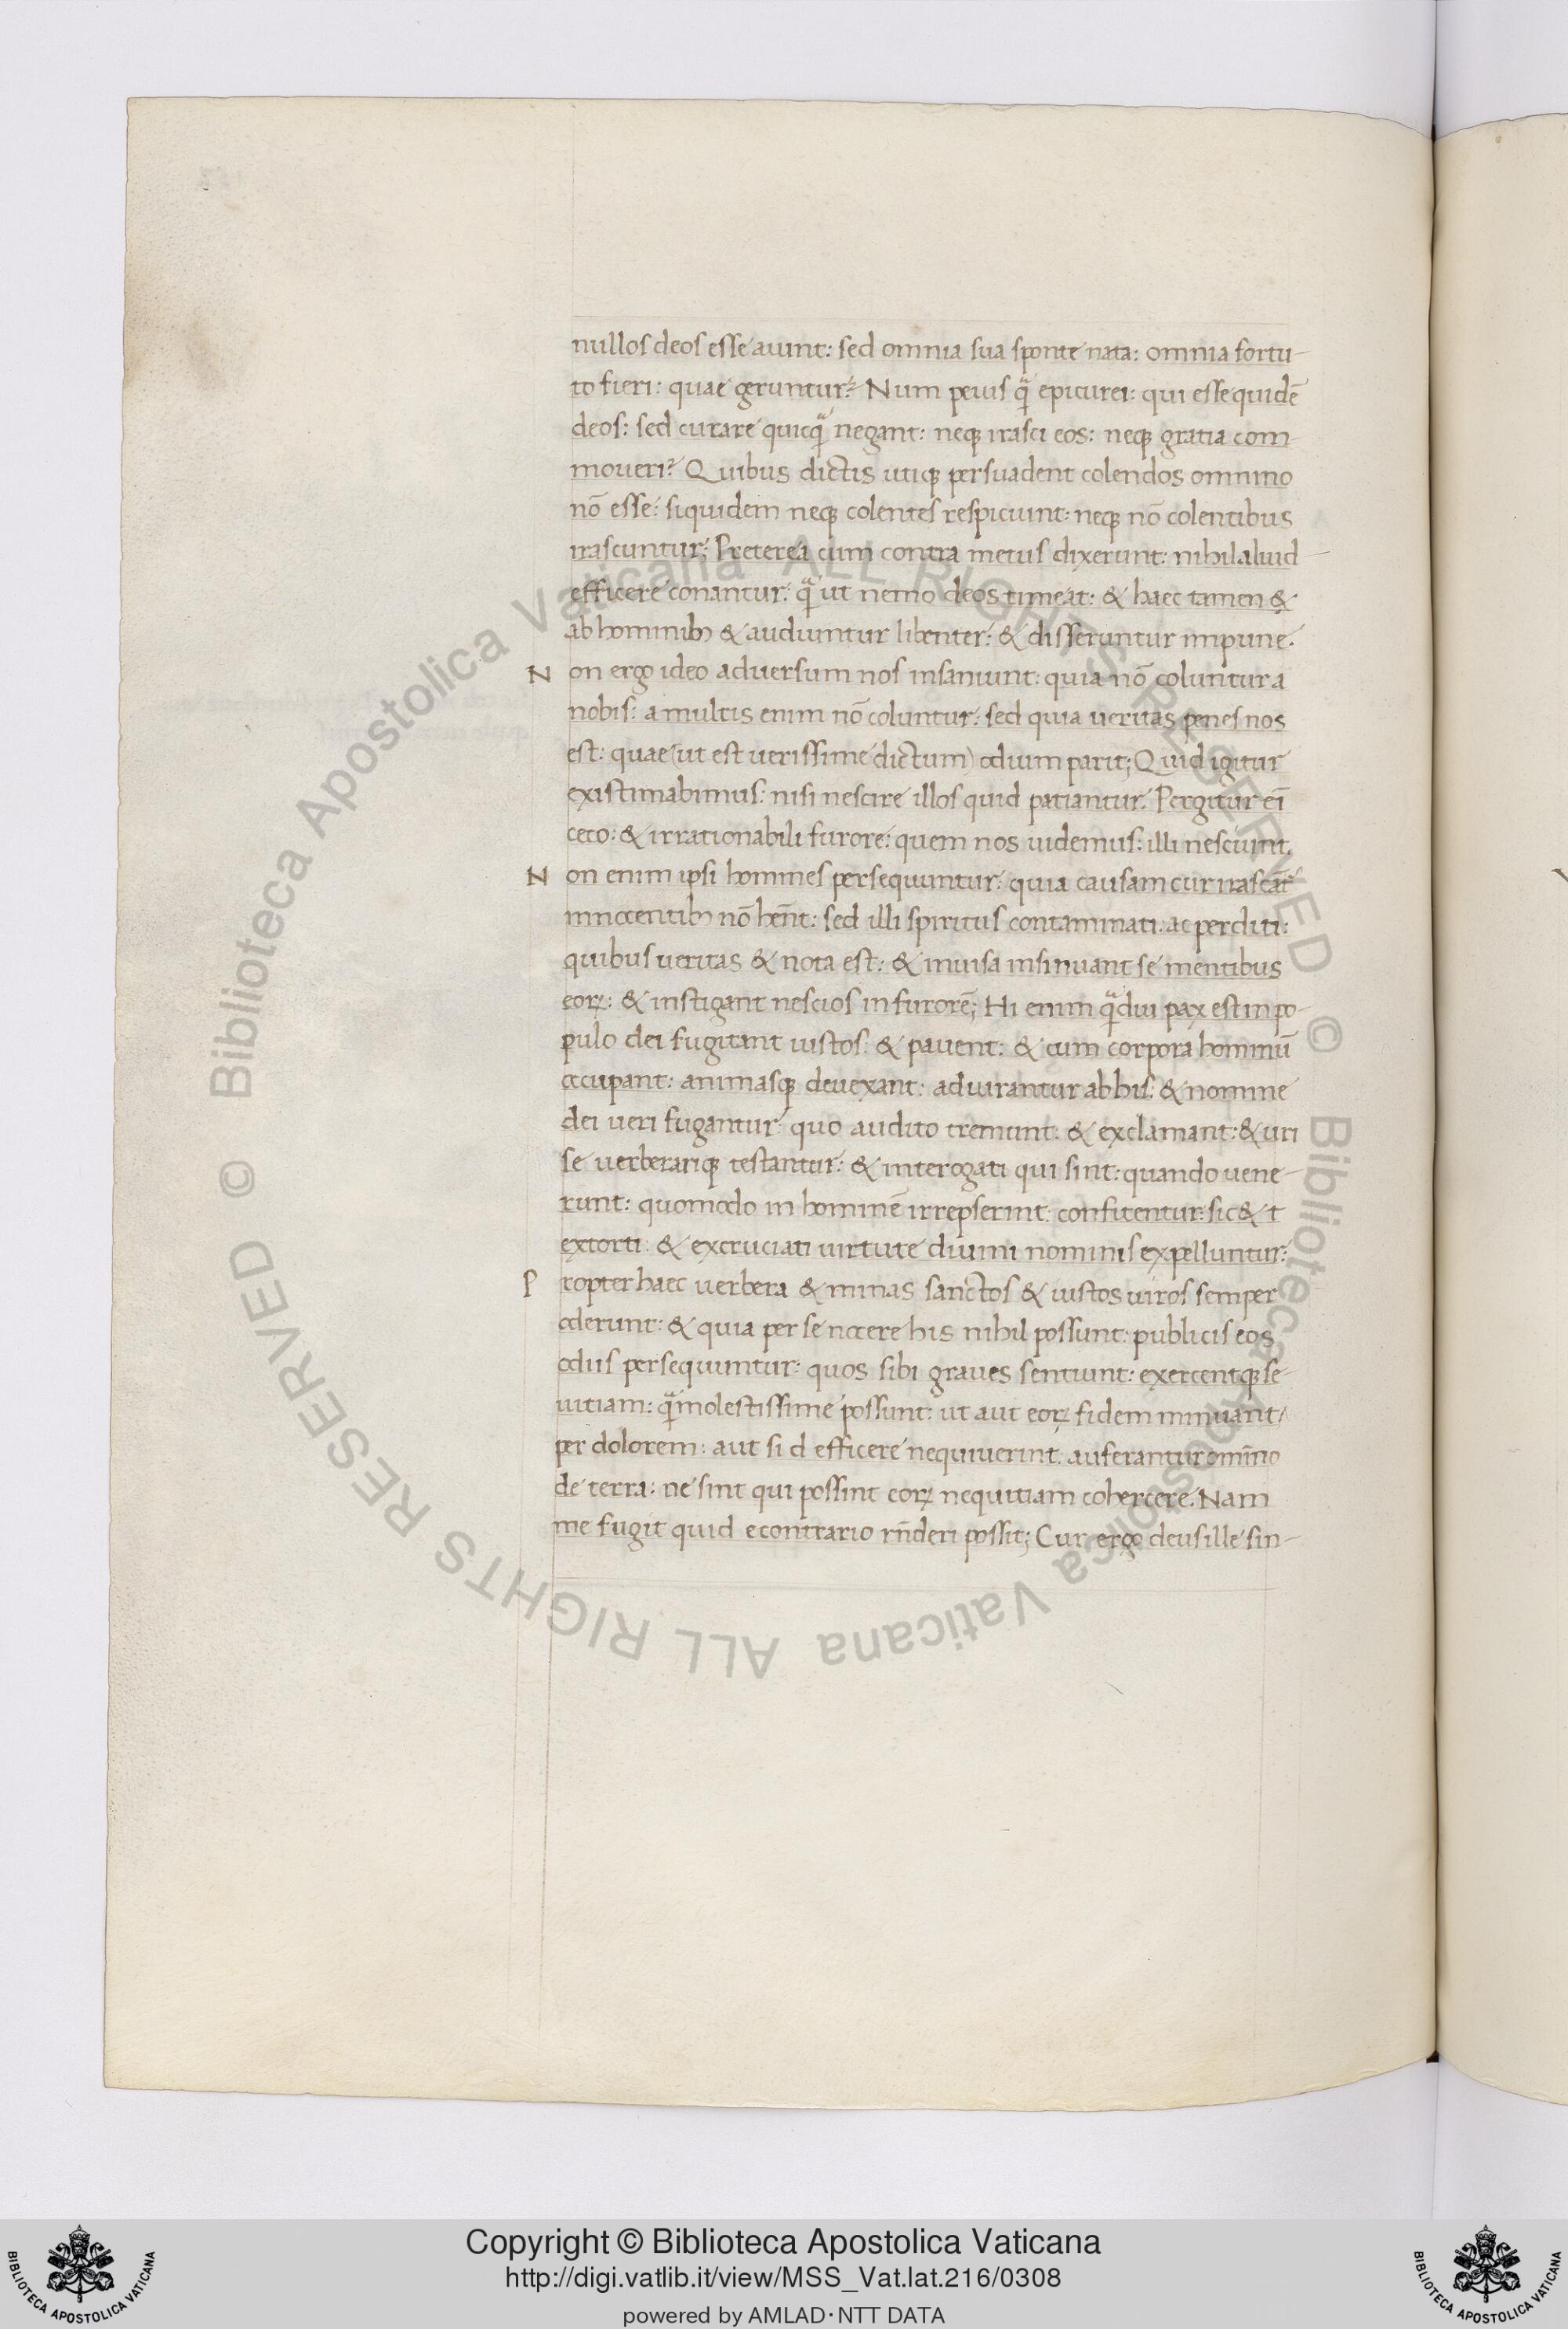 nullos deos esse aiunt: sed omnia sua sponte nata: omnia fortu-
to fieri: quae geruntur? Num peius q̃ epicurei: qui esse quidẽ
deos: sed curare quicq̃ negant: neqꝫ irasci eos: neqꝫ gratia com-
moueri? Quibus dictis utiqꝫ persuadent colendos omnino
nõ esse: siquidem neqꝫ colentes respiciunt: neqꝫ nõ colentibus
irascuntur; Preterea cum contra metus dixerunt: nihil aliud
efficere conantur: q̃ ut nemo deos timeat: & haec tamen &
ab hominibꝫ & audiuntur libenter: & disseruntur impune.
Non ergo ideo aduersum nos insaniunt: quia nõ coluntur a
nobis: a multis enim nõ coluntur: sed quia ueritas penes nos
est: quae (ut est uerissime dictum) odium parit; Quid igitur
existimabimus: nisi nescire illos quid patiantur. Pergitur eĩ
ceco: & irrationabili furore: quem nos uidemus: illi nesciunt.
Non enim ipsi homines persequuntur: quia causam cur irascãt̃
innocentibꝫ nõ hñt: sed illi spiritus contaminati: ac perditi:
quibus ueritas & nota est: & inuisa insinuant se mentibus
eoꝝ: & instigant nescios in furorẽ; Hi enim q̃diu pax est in po-
pulo dei fugitant iustos: & pauent: & cum corpora hominũ
occupant: animasqꝫ deuexant: adiurantur ab his: & nomine
dei ueri fugantur: quo audito tremunt: & exclamant: & uri
se uerberariqꝫ testantur: & interogati qui sint: quando uene-
runt: quomodo in hominẽ irrepserint: confitentur: sic & t
extorti: & excruciati uirtute diuini nominis expelluntur:
Propter haec uerbera & minas sanctos & iustos uiros semper
oderunt: & quia per se nocere his nihil possunt: publicis eos
odiis persequuntur: quos sibi graues sentiunt: exercentqꝫ se-
uitiam: q̃ molestissime possunt: ut aut eoꝝ fidem minuant/
per dolorem: aut si d efficere nequiuerint: auferantur omĩno
de terra: ne sint qui possint eoꝝ nequitiam cohercere. Nam
me fugit quid econtrario rñderi possit; Cur ergo deus ille sin-
© Biblioteca Apostolica Vaticana ALL RIGHTS RESERVED © Biblioteca Apostolica Vaticana ALL RIGHTS RESERVED
BIBLIOTECA APOSTOLICA VATICANA
Copyright © Biblioteca Apostolica Vaticana
http://digi.vatlib.it/view/MSS_Vat.lat.216/0308
powered by AMLAD·NTT DATA
BIBLIOTECA APOSTOLICA VATICANA